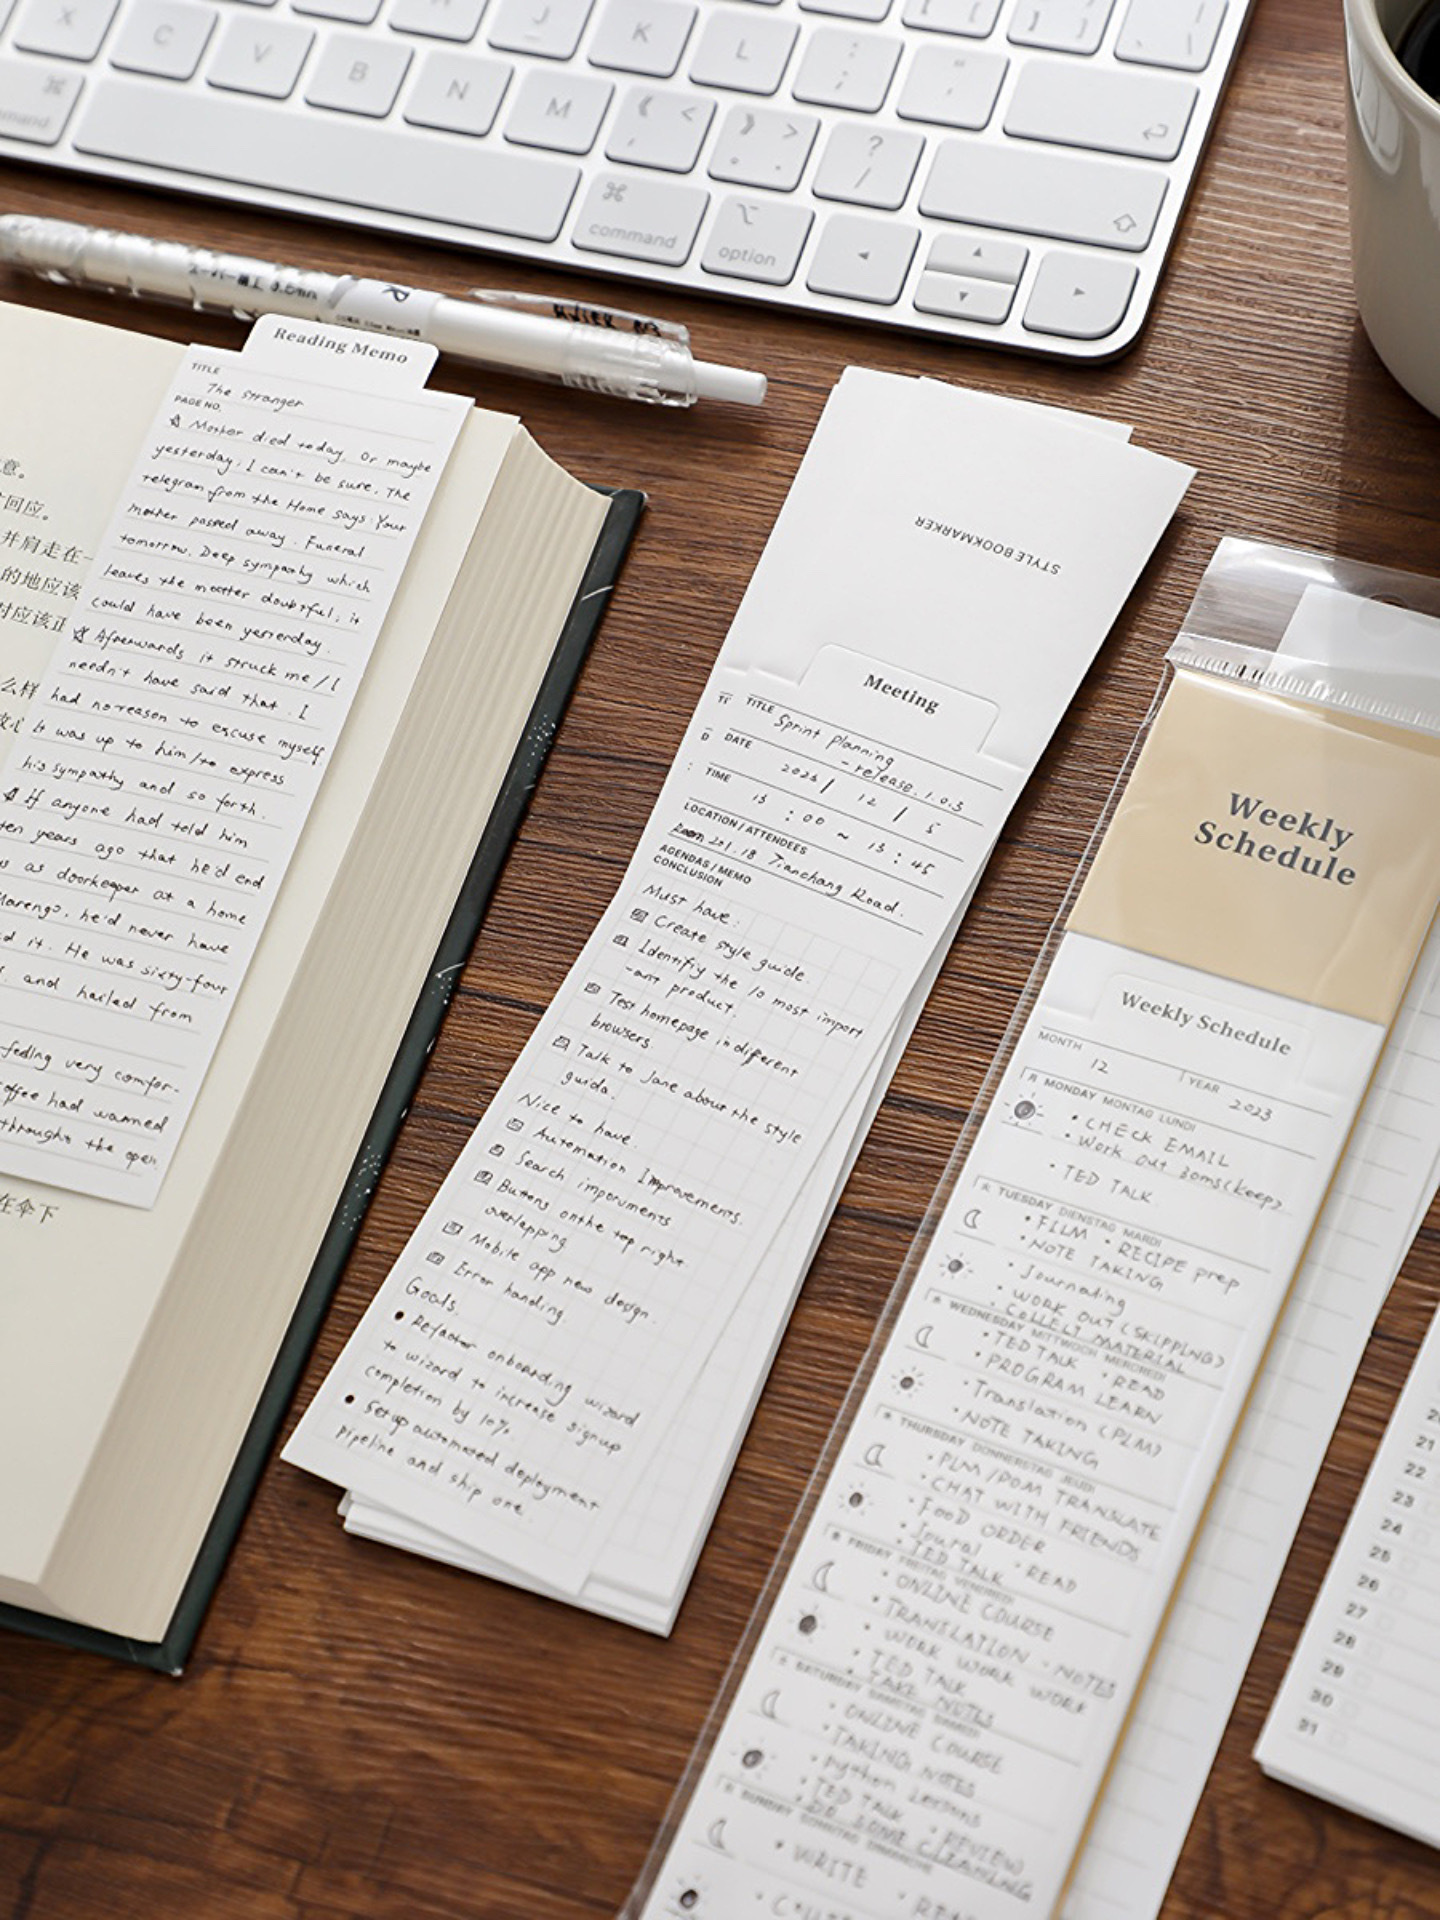 X
C
V
B
N
M
J
K
L
:
;
"
'
{
[
}
]
|
\
⌘
mmand
《 <
,
》 >
。 .
?
/
⌘
command
⌥
option
スーパー細工 0.5mm
Reading Memo
TITLE
The stranger
PAGE NO.
Mother died today. Or maybe
yesterday; I can't be sure. The
telegram from the Home says: Your
mother passed away. Funeral
tomorrow. Deep sympathy which
leaves the matter doubtful; it
could have been yesterday.
Afterwards it struck me / I
needn't have said that. I
had no reason to excuse myself
it was up to him / to express
his sympathy and so forth.
If anyone had told him
ten years ago that he'd end
as doorkeeper at a home
Marengo, he'd never have
it. He was sixty-four
and hailed from
feeling very comfor-
coffee had warmed
throught the open
意。
回应。
并肩走在一
的地应该
对应该正
么样
在伞下
STYLE BOOKMARKER
Meeting
TITLE Sprint planning
- release. 1.0.3
DATE
202 / 12 / 5
TIME
13 : 00 ~ 13 : 45
LOCATION / ATTENDEES
Room 201. 18 Tianchang Road.
AGENDAS / MEMO
CONCLUSION
Must have:
Create style guide.
Identifiy the 10 most import
-ant product.
Test homepage in different
browsers.
Talk to Jane about the style
guida.
Nice to have.
Automation Improvements.
Search imporuments
Buttons on the top right
overlapping
Mobile app new design.
Error handing.
Goals.
Refactor onboarding wizard
to wizard to increase signup
completion by 10%.
Set up automated deployment
pipeline and ship one.
Weekly
Schedule
Weekly Schedule
MONTH 12 YEAR 2023
MONDAY MONTAG LUNDI
• CHECK EMAIL
• Work out 30ms (keep)
• TED TALK
TUESDAY DIENSTAG MARDI
• FILM • RECIPE prep
• NOTE TAKING
• Journating
• WORK OUT (SKIPPING)
• COLLECT MATERIAL
WEDNESDAY MITTWOCH MERCREDI
• TED TALK • READ
• PROGRAM LEARN
• Translation (PLM)
• NOTE TAKING
THURSDAY DONNERSTAG JEUDI
• PLM/PDM TRANSLATE
• CHAT WITH FRIENDS
• FOOD ORDER
• Joural • READ
• TED TALK
FRIDAY FREITAG VENDREDI
• ONLINE COURSE
• TRANSLATION • NOTES
• WORK WORK WORK
• TED TALK
• TAKE NOTES
SATURDAY SAMSTAG SAMEDI
• ONLINE COURSE
• TAKING NOTES
• python Lessons
• TED TALK • REVIEW
• DO SOME CLEANING
SUNDAY SONNTAG DIMANCHE
• WRITE
21
22
23
24
25
26
27
28
29
30
31